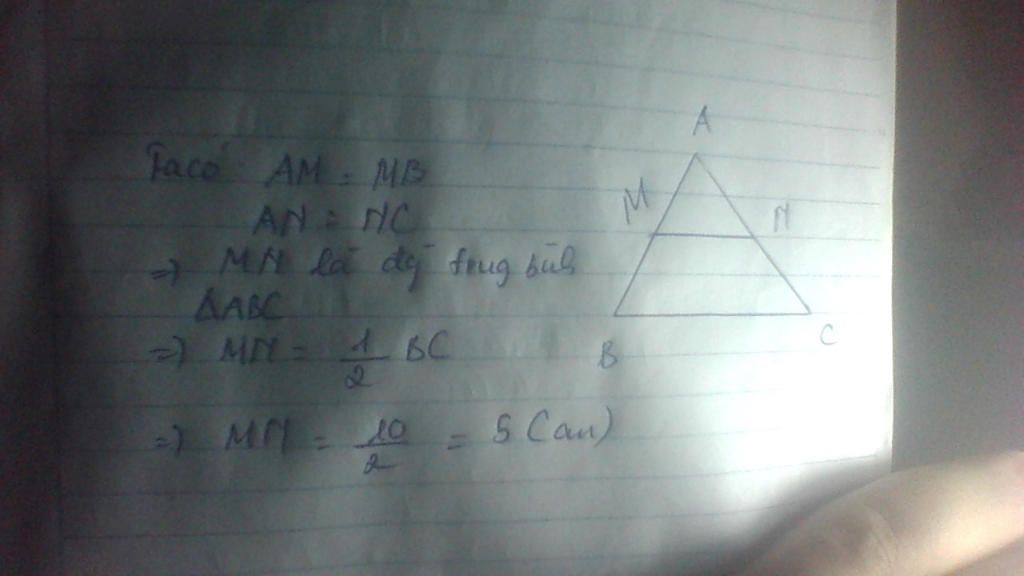 Ta có: AM = MB
AN = NC
=) MN là đg trung bình
ΔABC
=) MN = 1/2 BC
=) MN = 10/2 = 5 (cm)
A
M
N
B
C